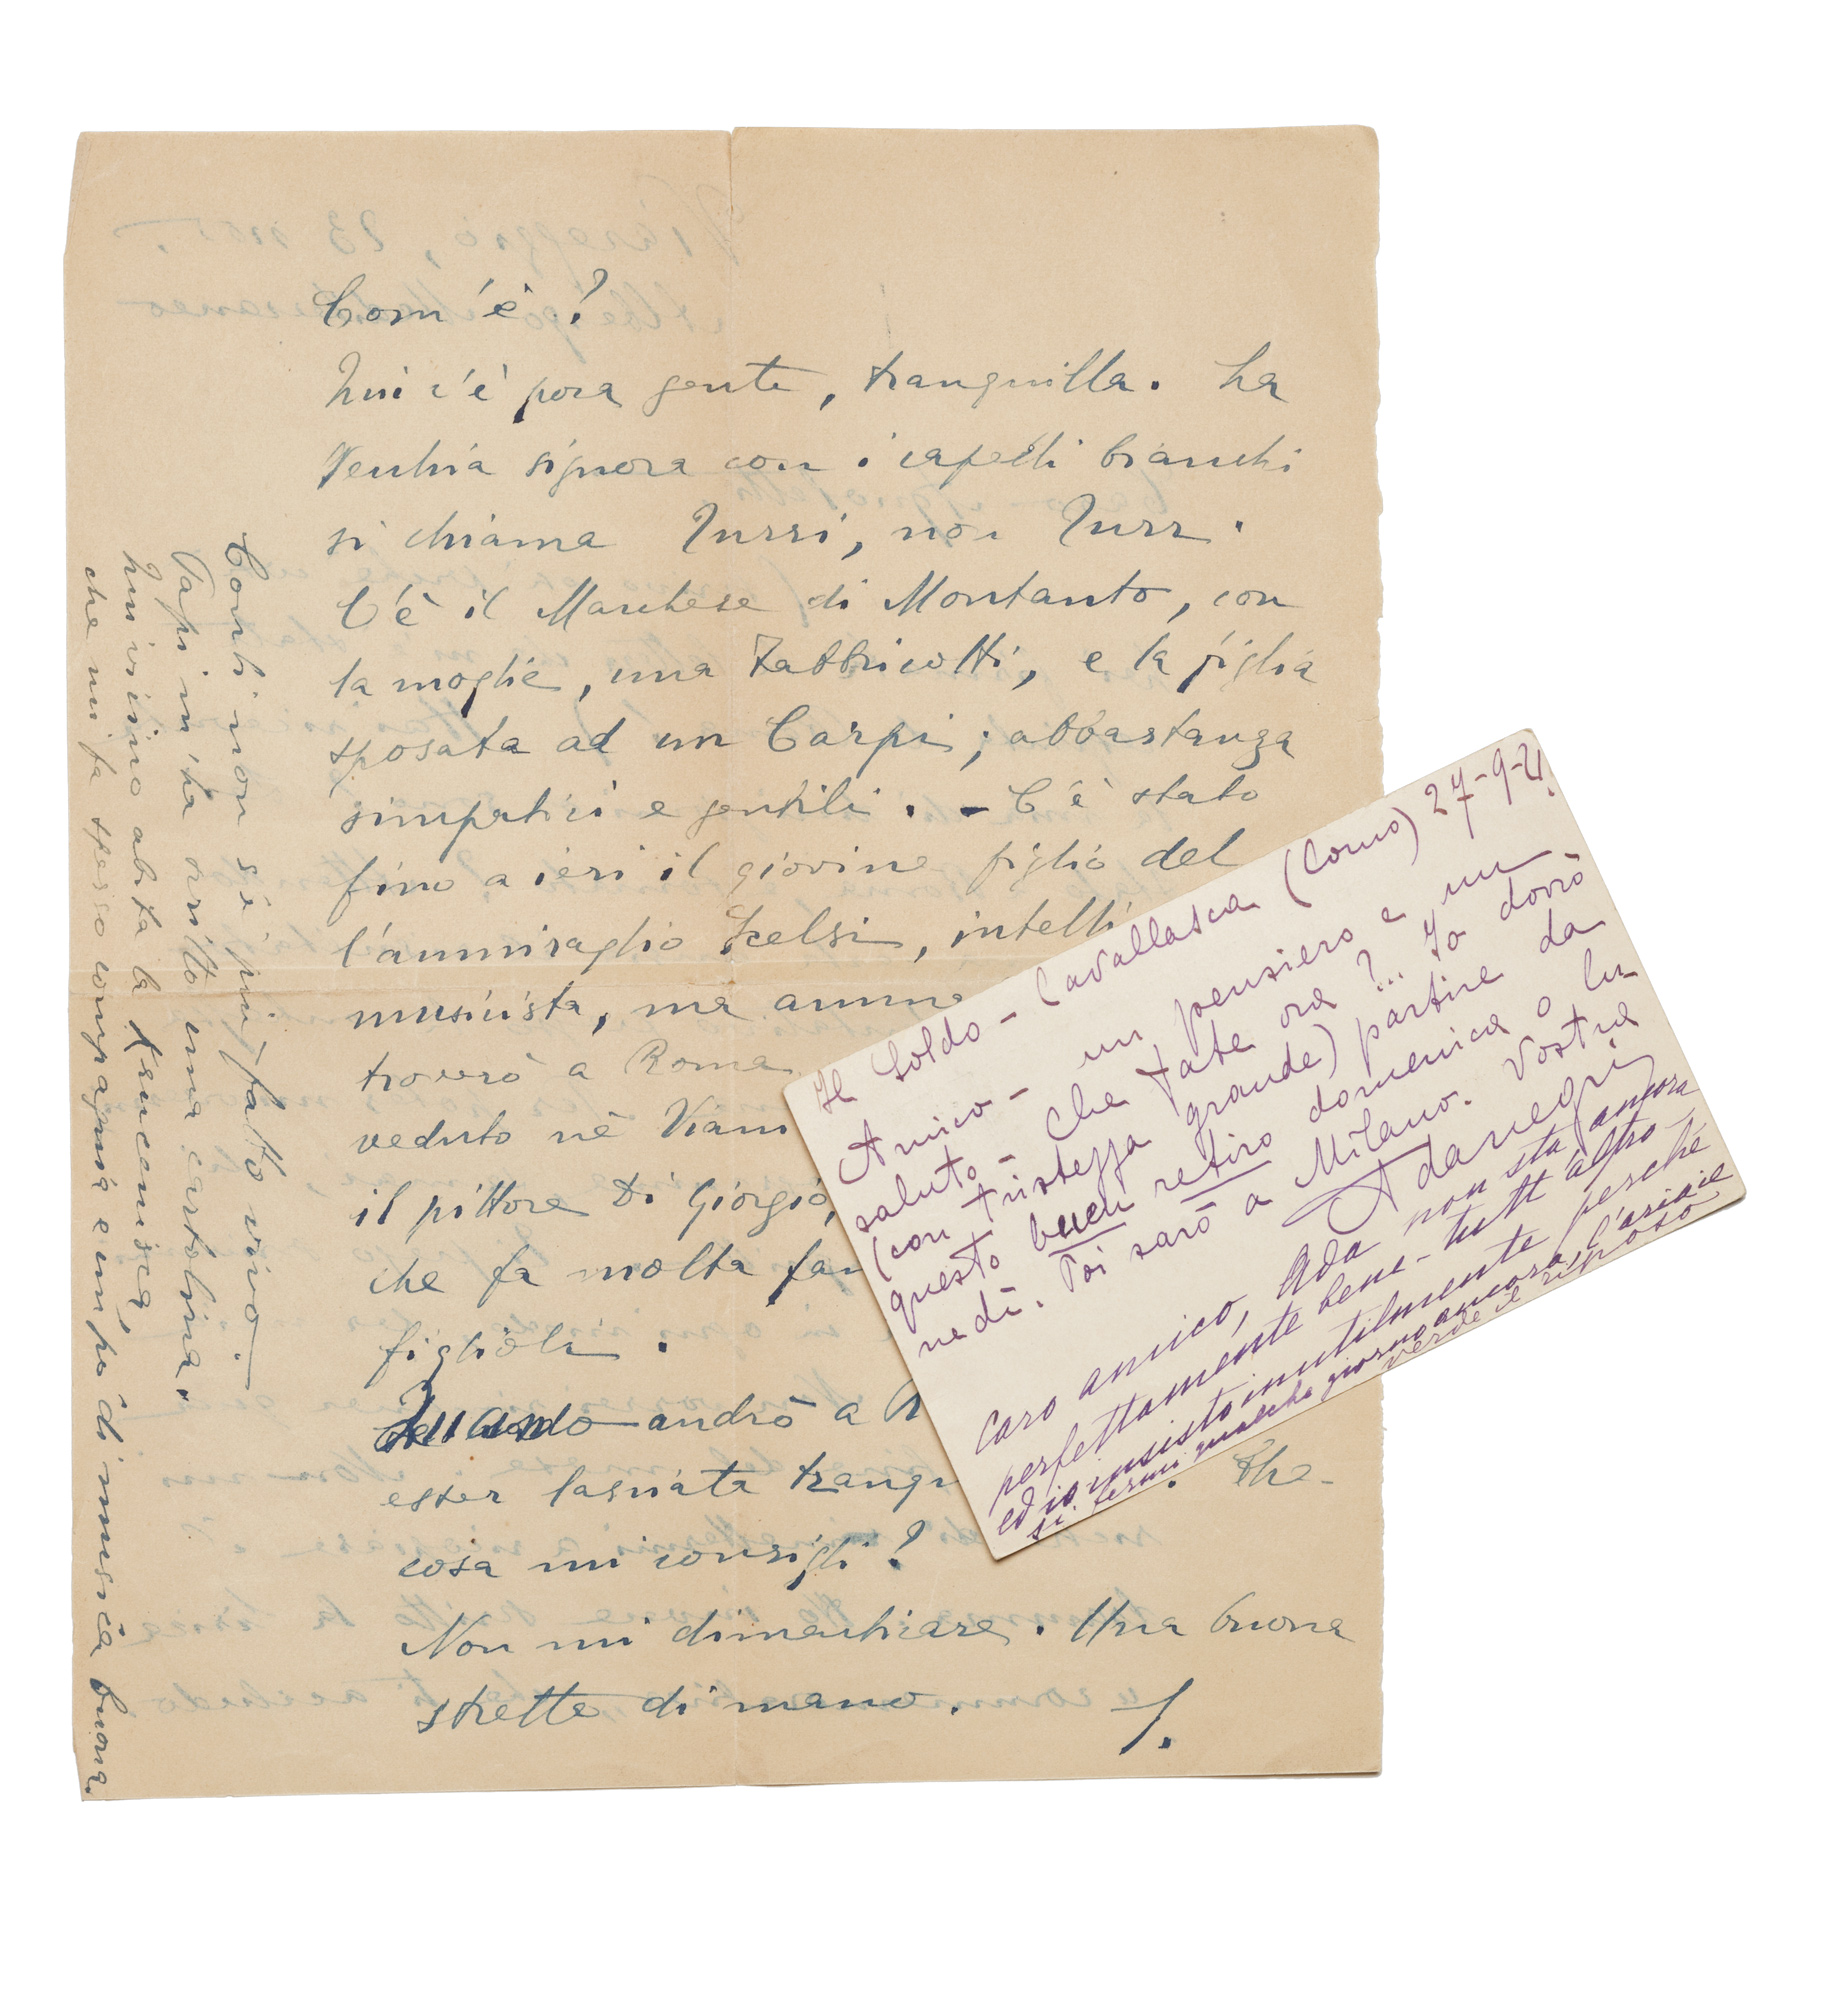 Com'è?
Qui c'è poca gente, tranquilla. La
vecchia signora con i capelli bianchi
si chiama Turri, non Turr.
C'è il Marchese di Montauto, con
la moglie, una Fabbricotti, e la figlia
sposata ad un Carpi; abbastanza
simpatici e gentili. - C'è stato
fino a ieri il giovine figlio del
l'ammiraglio Scelsi, intelli
musicista, ma amma
troverò a Roma
veduto nè Viani
il pittore Di Giorgio,
che fa molta fam
figlioli.
Quando andrò a R
esser lasciata tranqu
. Che
cosa mi consigli?
Non mi dimenticare. Una buona
stretta di mano. S.
Conti non s'è più fatto vivo.
Papi m'ha scritto una cartolina.
Qui vicino abita la
che mi fa spesso compagnia e un po' di musica buona.
Il Soldo - Cavallasca (Como) 27-9-21.
Amico - un pensiero e un
saluto - Che fate ora?... Io dovrò
(con tristezza grande) partire da
questo buen retiro domenica o lu
nedì. Poi sarò a Milano. Vostra
Adanegri
Caro amico, Ada non sta ancora
perfettamente bene - tutt'altro -
ed io insisto inutilmente perchè
si fermi qualche giorno ancora, l'aria il
verde il riposo